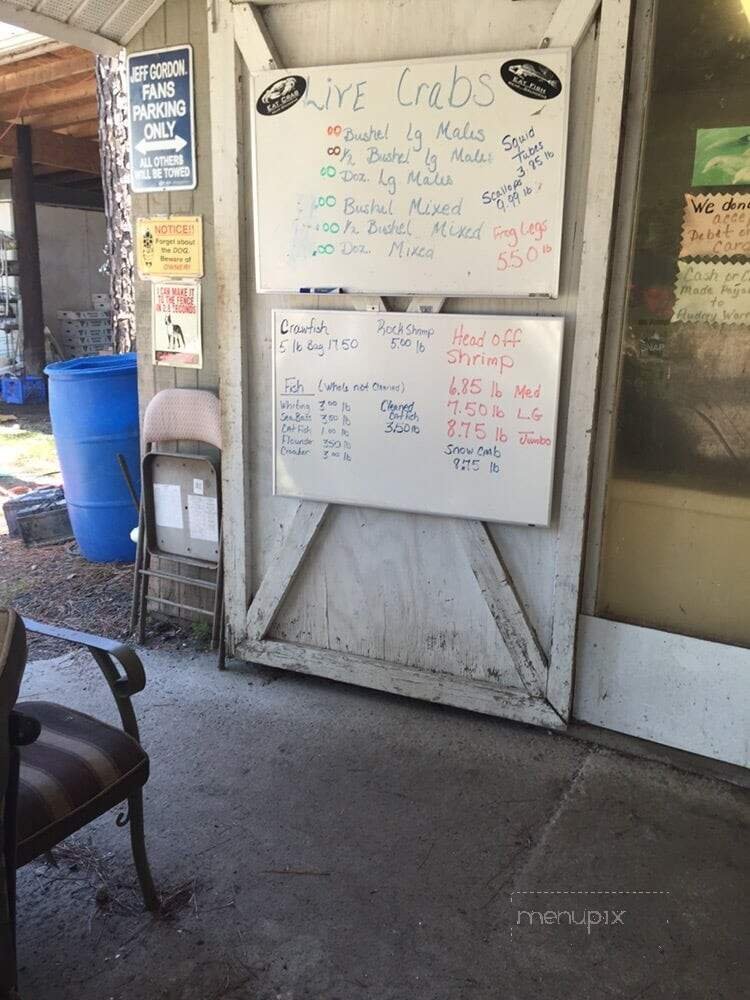 JEFF GORDON
FANS
PARKING
ONLY
ALL OTHERS
WILL BE TOWED
NOTICE!!
Forget about
the DOG.
Beware of
OWNER!
I CAN MAKE IT
TO THE FENCE
IN 2.8 SECONDS
EAT CRAB
EAT FISH
Live Crabs
00 Bushel Lg Males
00 1/2 Bushel Lg Males
00 Doz. Lg Males
.00 Bushel Mixed
.00 1/2 Bushel Mixed
.00 Doz. Mixed
Squid
Tubes
3.95 lb
Scallops
9.99 lb
Frog Legs
5.50 lb
Crawfish
5 lb Bag 17.50
Rock Shrimp
5.00 lb
Head off
Shrimp
6.85 lb Med
7.50 lb LG
8.75 lb Jumbo
Snow Crab
lb
Fish (Whole not Cleaned)
Whiting 3.00 lb
Sea Bass 3.50 lb
Catfish 1.00 lb
Flounder 3.50 lb
Croaker 3.00 lb
Cleaned
Catfish
3.50 lb
We don
acce
Debit o
Car
Cash or
Made Paya
to
SNAP
menupix